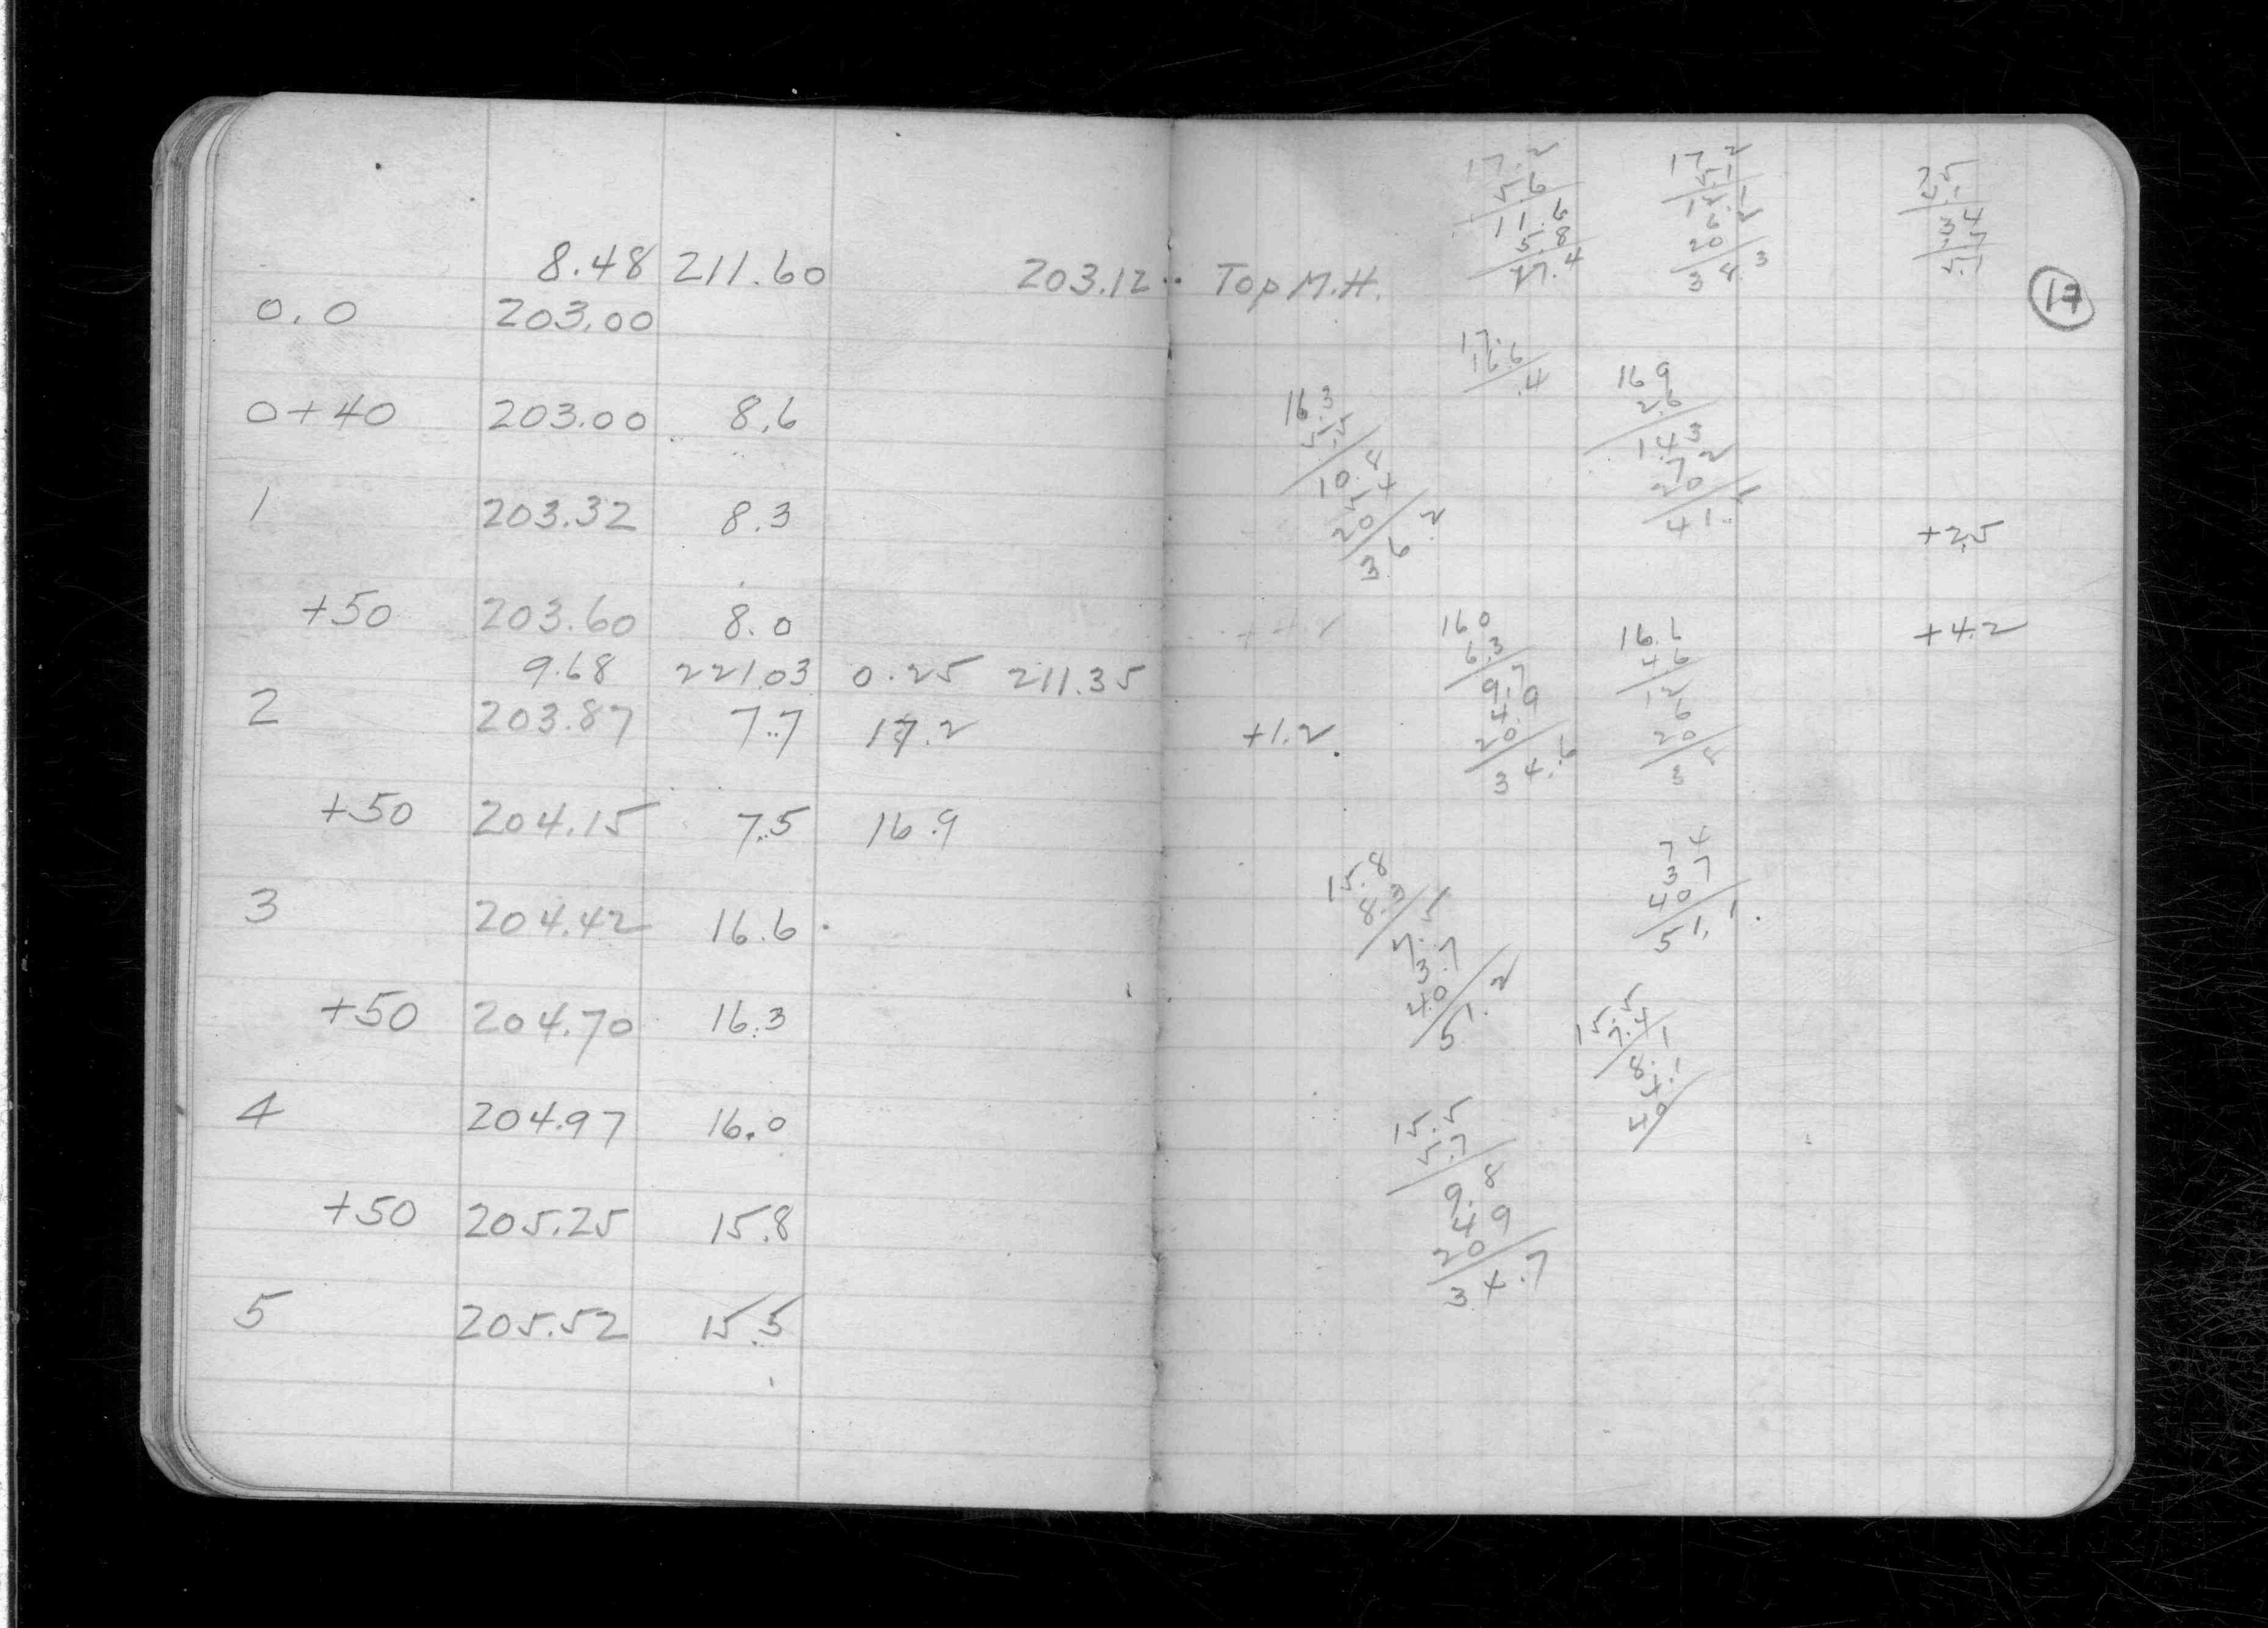 8.48 211.60 203.12 Top M.H.
0.0 203.00
0+40 203.00 8.6
1 203.32 8.3
+50 203.60 8.0
9.68 221.03 0.25 211.35
2 203.87 7.7 17.2
+50 204.15 7.5 16.9
3 204.42 16.6
+50 204.70 16.3
4 204.97 16.0
+50 205.25 15.8
5 205.52 15.5
17.2
5.6
11.6
5.8
17.2
5.1
20
3.4
17
17.
16.6
.4
16.3
5.5
10.8
5.4
20
36.2
16.9
2.6
14.3
7.2
20
41.
+2.5
+4.2
+1.2
16.0
6.3
9.7
4.9
20
34.6
16.6
4.6
12
6
20
38
15.8
8.3
7.5
3.7
40
51.2
7.4
3.7
40
51.1
15.5
7.4
8.1
4.1
40
15.5
5.7
9.8
4.9
20
34.7